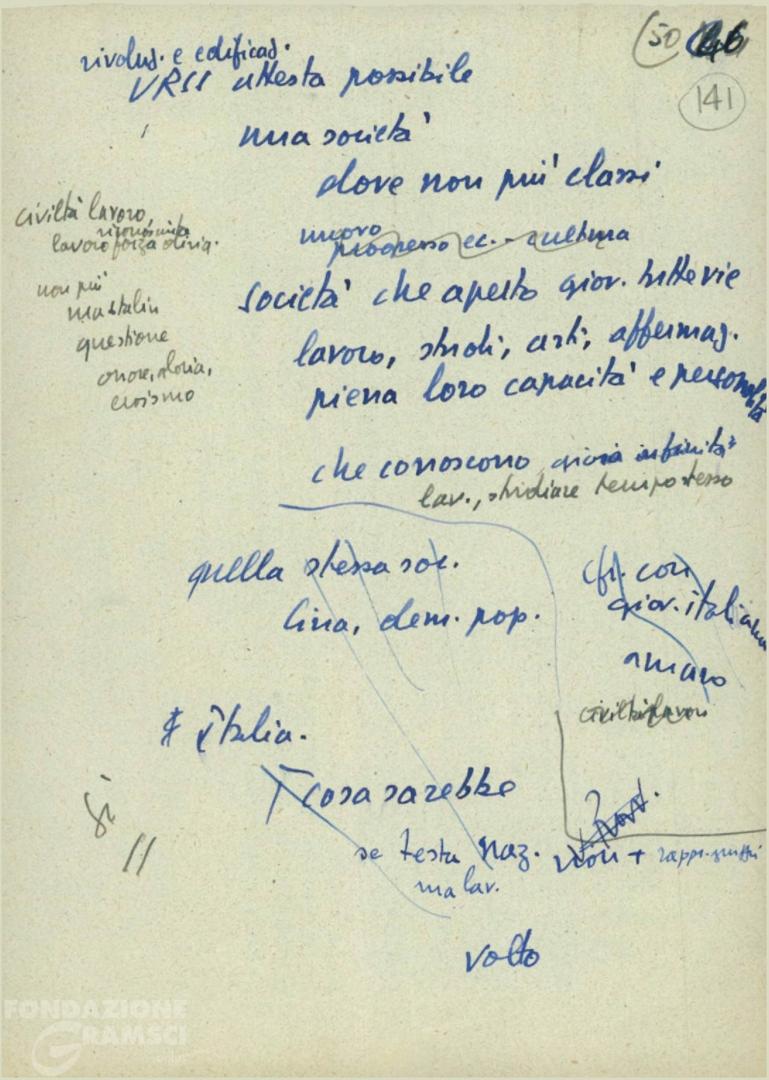 (50 46
141
rivoluz. e edificaz.
URSS attesta possibile
una società
dove non più classi
nuovo
progresso ec. - cultura
civiltà lavoro,
riconosciuta
lavoro forza dirig.
non più
ma stalin
questione
onore, gloria,
eroismo
società che aperto giov. tutte vie
lavoro, studi, arti, affermaz.
piena loro capacità e personalità
che conoscono gioia infinita
lav., studiare tempo stesso
quella stessa soc.
Cina, dem. pop.
cfr. con
giov. italiana
amaro
civiltà lavoro
Italia.
cosa sarebbe
se testa naz.
ma lav.
non + rapp. gruppi
volto
Sì
//
FONDAZIONE
GRAMSCI